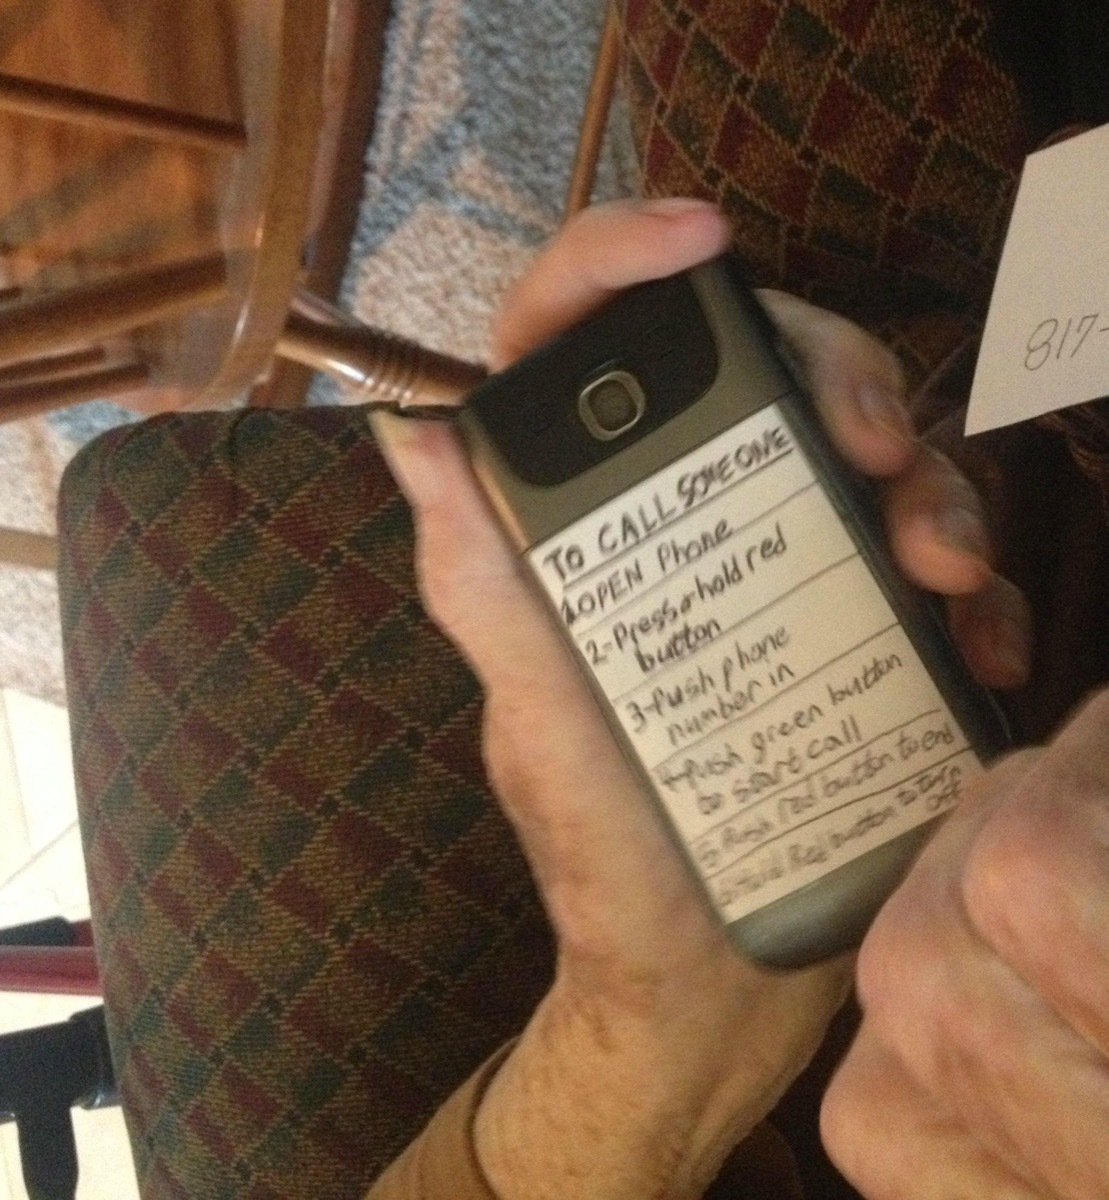 TO CALL SOMEONE
1-OPEN Phone
2-Press & hold red
button
3-Push phone
number in
4-push green button
to start call
5-Push red button to end
Hold Red button to turn
off
817-